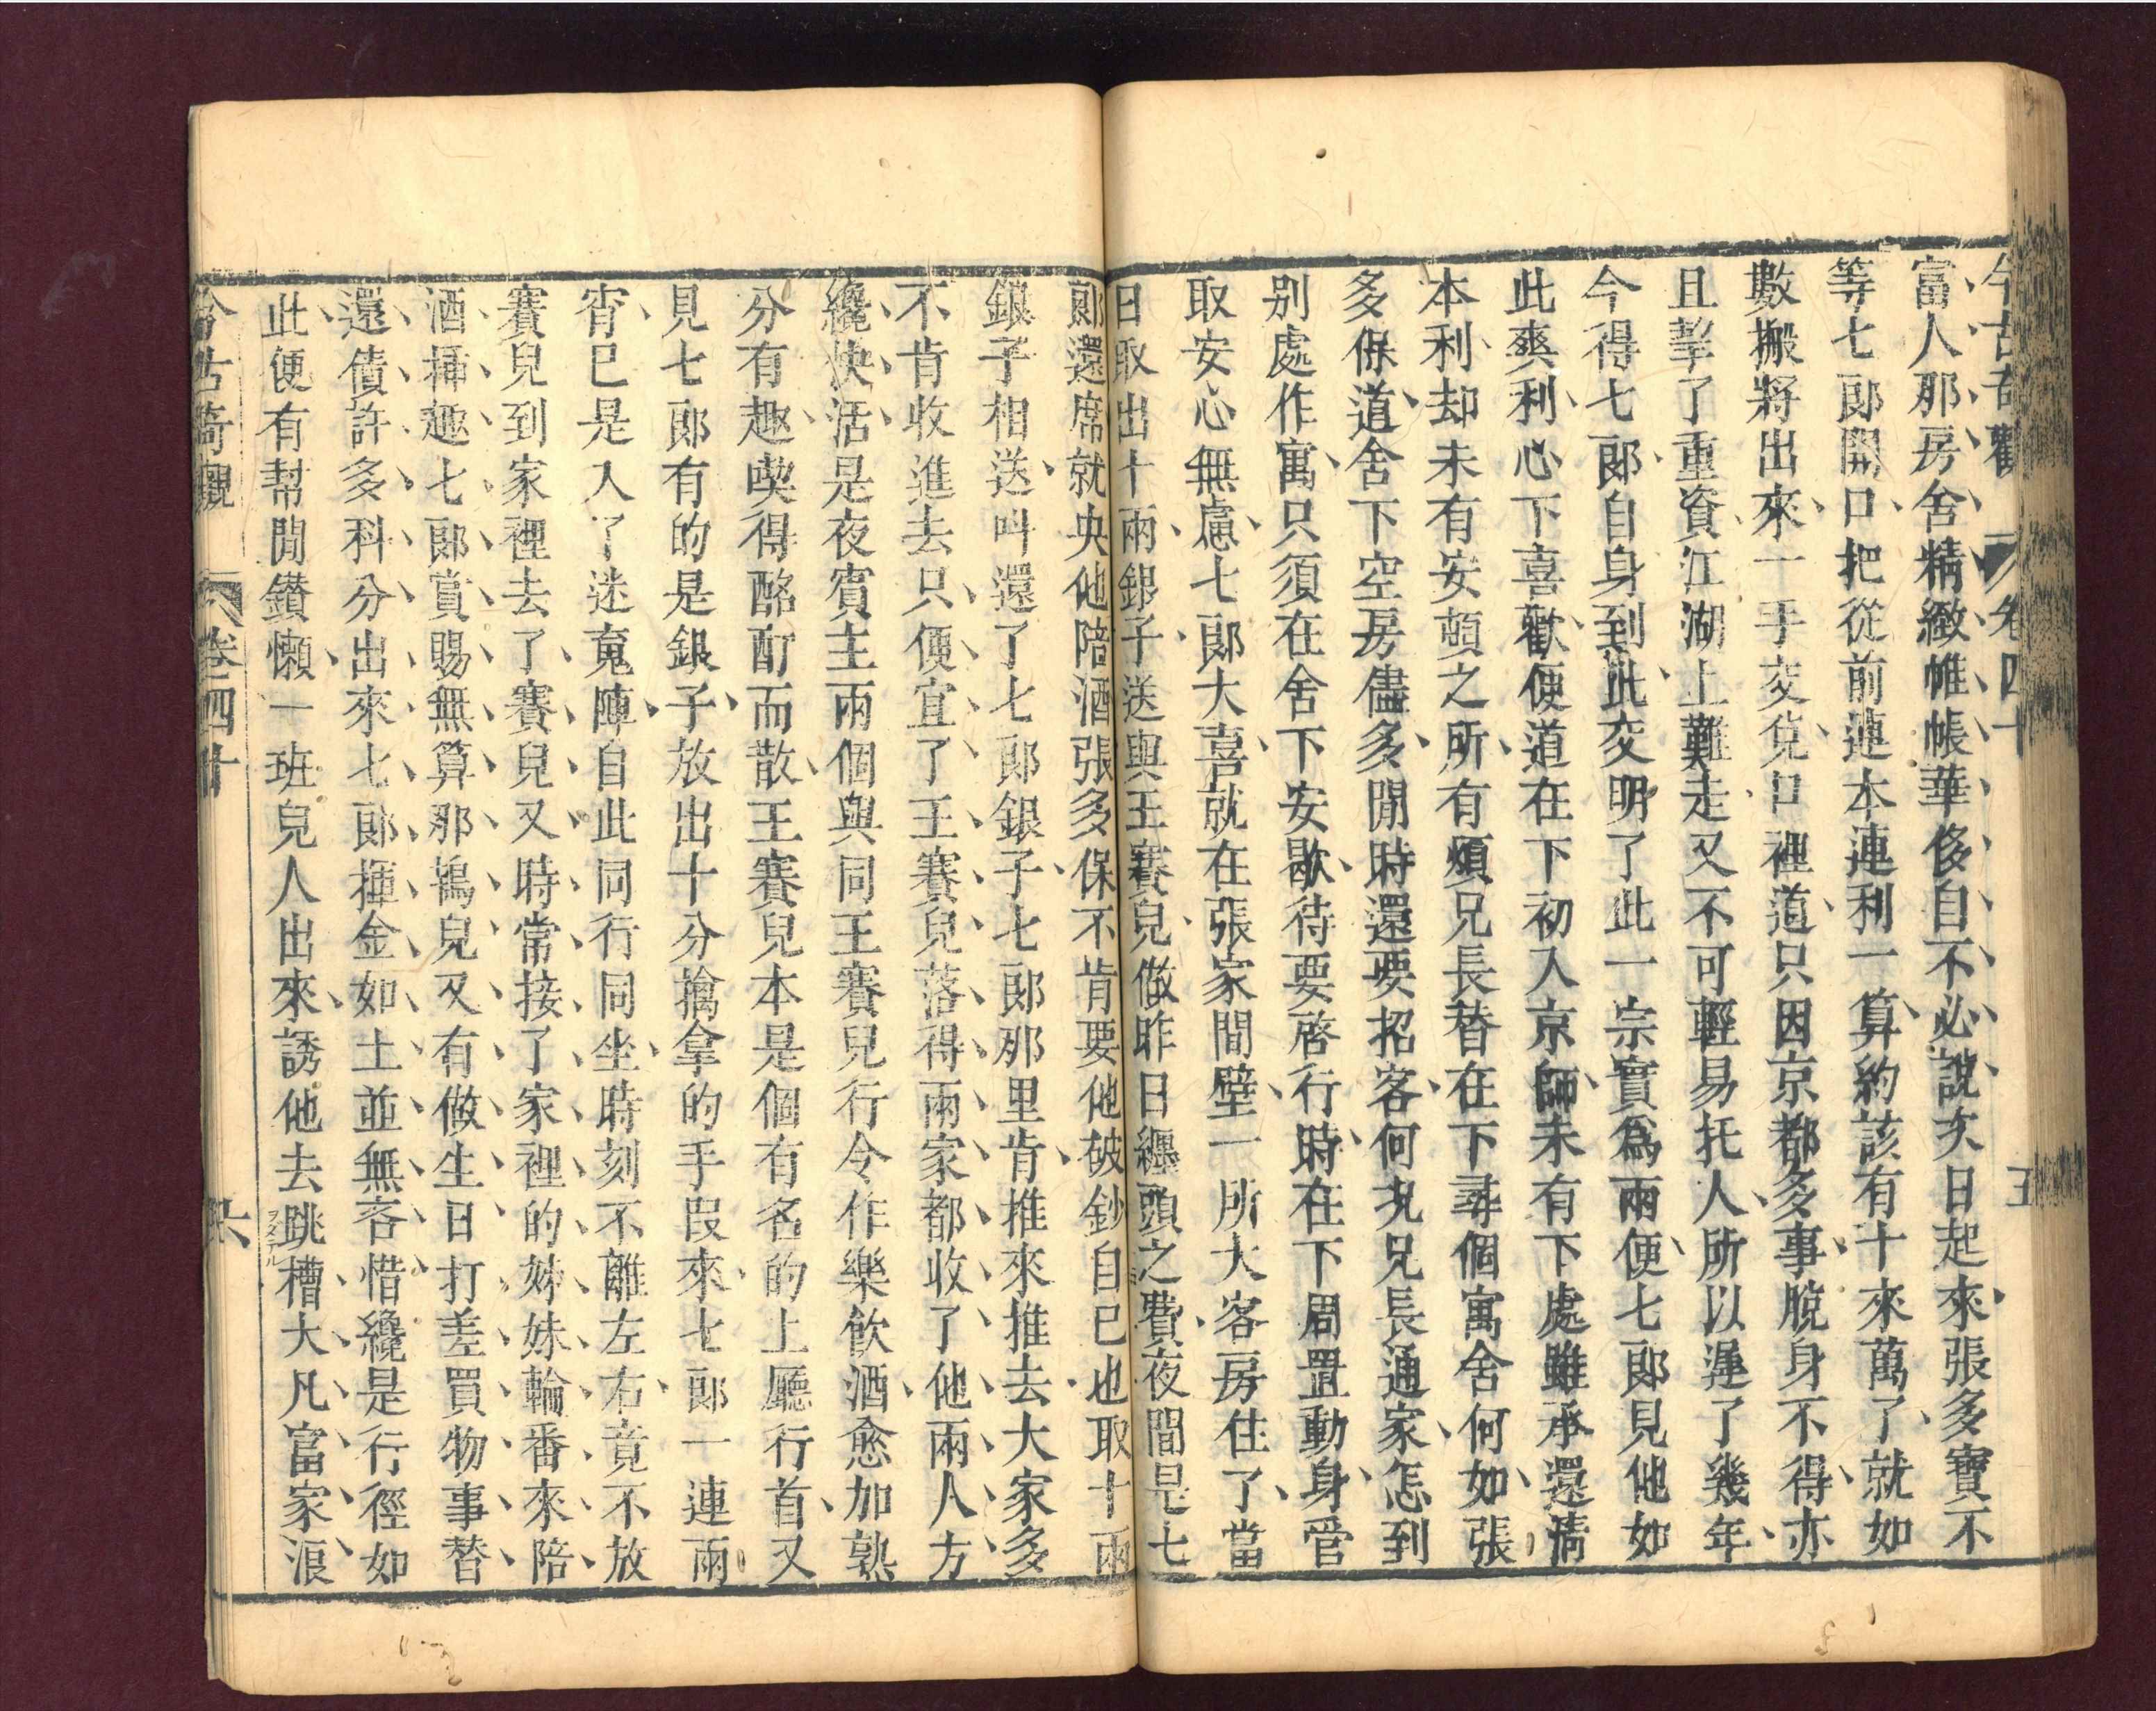 今古奇觀 卷四十 五
富人那房舍精緻帷帳華侈自不必說次日起來張多寶不
等七郎開口把從前連本連利一算約該有十來萬了就如
數搬將出來一手交兌口裡道只因京都多事脫身不得亦
且挈了重資江湖上難走又不可輕易托人所以遲了幾年
今得七郎自身到此交明了此一宗實為兩便七郎見他如
此爽利心下喜歡便道在下初入京師未有下處雖承還清
本利却未有安頓之所有煩兄長替在下尋個寓舍何如張
多保道舍下空房儘多閒時還要招客何况兄長通家怎到
別處作寓只須在舍下安歇待要啓行時在下周置動身管
取安心無慮七郎大喜就在張家間壁一所大客房住了當
日取出十兩銀子送與王賽兒做昨日纏頭之費夜間是七
郎還席就央他陪酒張多保不肯要他破鈔自己也取十兩
銀子相送叫還了七郎銀子七郎那里肯推來推去大家多
不肯收進去只便宜了王賽兒落得兩家都收了他兩人方
纔快活是夜賓主兩個與同王賽兒行令作樂飲酒愈加熟
分有趣喫得酩酊而散王賽兒本是個有名的上廳行首又
見七郎有的是銀子放出十分擒拿的手段來七郎一連兩
宵已是入了迷䰟陣自此同行同坐時刻不離左右竟不放
賽兒到家裡去了賽兒又時常接了家裡的姊妹輪番來陪
酒揷趣七郎賞賜無算那鴇兒又有做生日打差買物事替
還債許多科分出來七郎揮金如土並無吝惜纔是行徑如
此便有幫閒鑽懶一班兒人出來誘他去跳槽大凡富家浪
ヲメテル
今古奇觀 卷四十 六